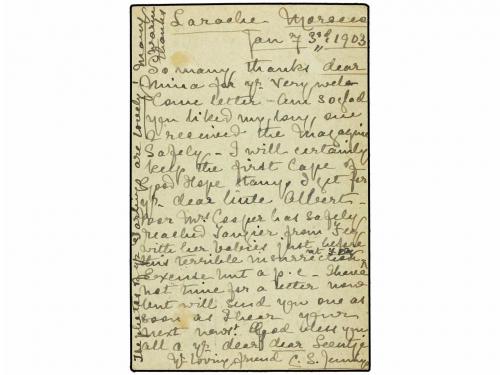 Larache - Morocco
Jan 7 3rd 1903
So many thanks dear
Mina for yr. very wel-
come letter - Am so glad
you liked my long one
I received the Magazine
Safely - I will certainly
keep the first Cape of
Good Hope stamp I get for
yr. dear little Albert -
Poor Mrs. Cooper has safely
reached Tangier from Fez
with her babies just before
this terrible insurrection
at Fez
Excuse but a p.c - I have
not time for a letter now
but will send you one as
soon as I hear your
next news. God bless you
all & yr. dear dear
Yr. loving friend C. S. Jennings
The photos of yr. darlings are lovely! Many
thanks